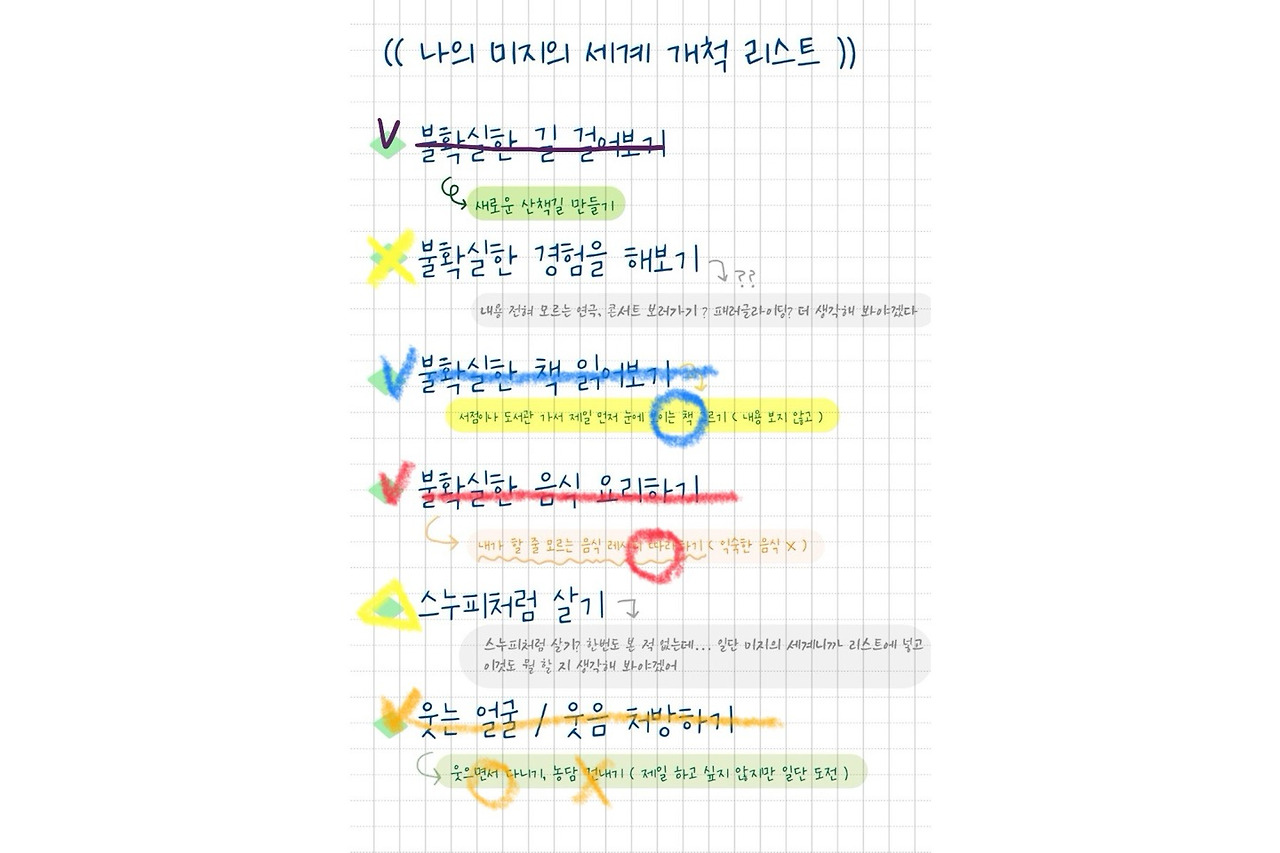 (( 나의 미지의 세계 개척 리스트 ))
V 불확실한 길 걸어보기
새로운 산책길 만들기
X 불확실한 경험을 해보기
??
내용 전혀 모르는 연극, 콘서트 보러가기? 패러글라이딩? 더 생각해 봐야겠다
V 불확실한 책 읽어보기
서점이나 도서관 가서 제일 먼저 눈에 이는 책 르기 ( 내용 보지 않고 )
V 불확실한 음식 요리하기
내가 할 줄 모르는 음식 레시피 따라하기 ( 익숙한 음식 X )
스누피처럼 살기
스누피처럼 살기? 한번도 본 적 없는데... 일단 미지의 세계니까 리스트에 넣고
이것도 뭘 할 지 생각해 봐야겠어
V 웃는 얼굴 / 웃음 처방하기
웃으면서 다니기, 농담 건내기 ( 제일 하고 싶지 않지만 일단 도전 )